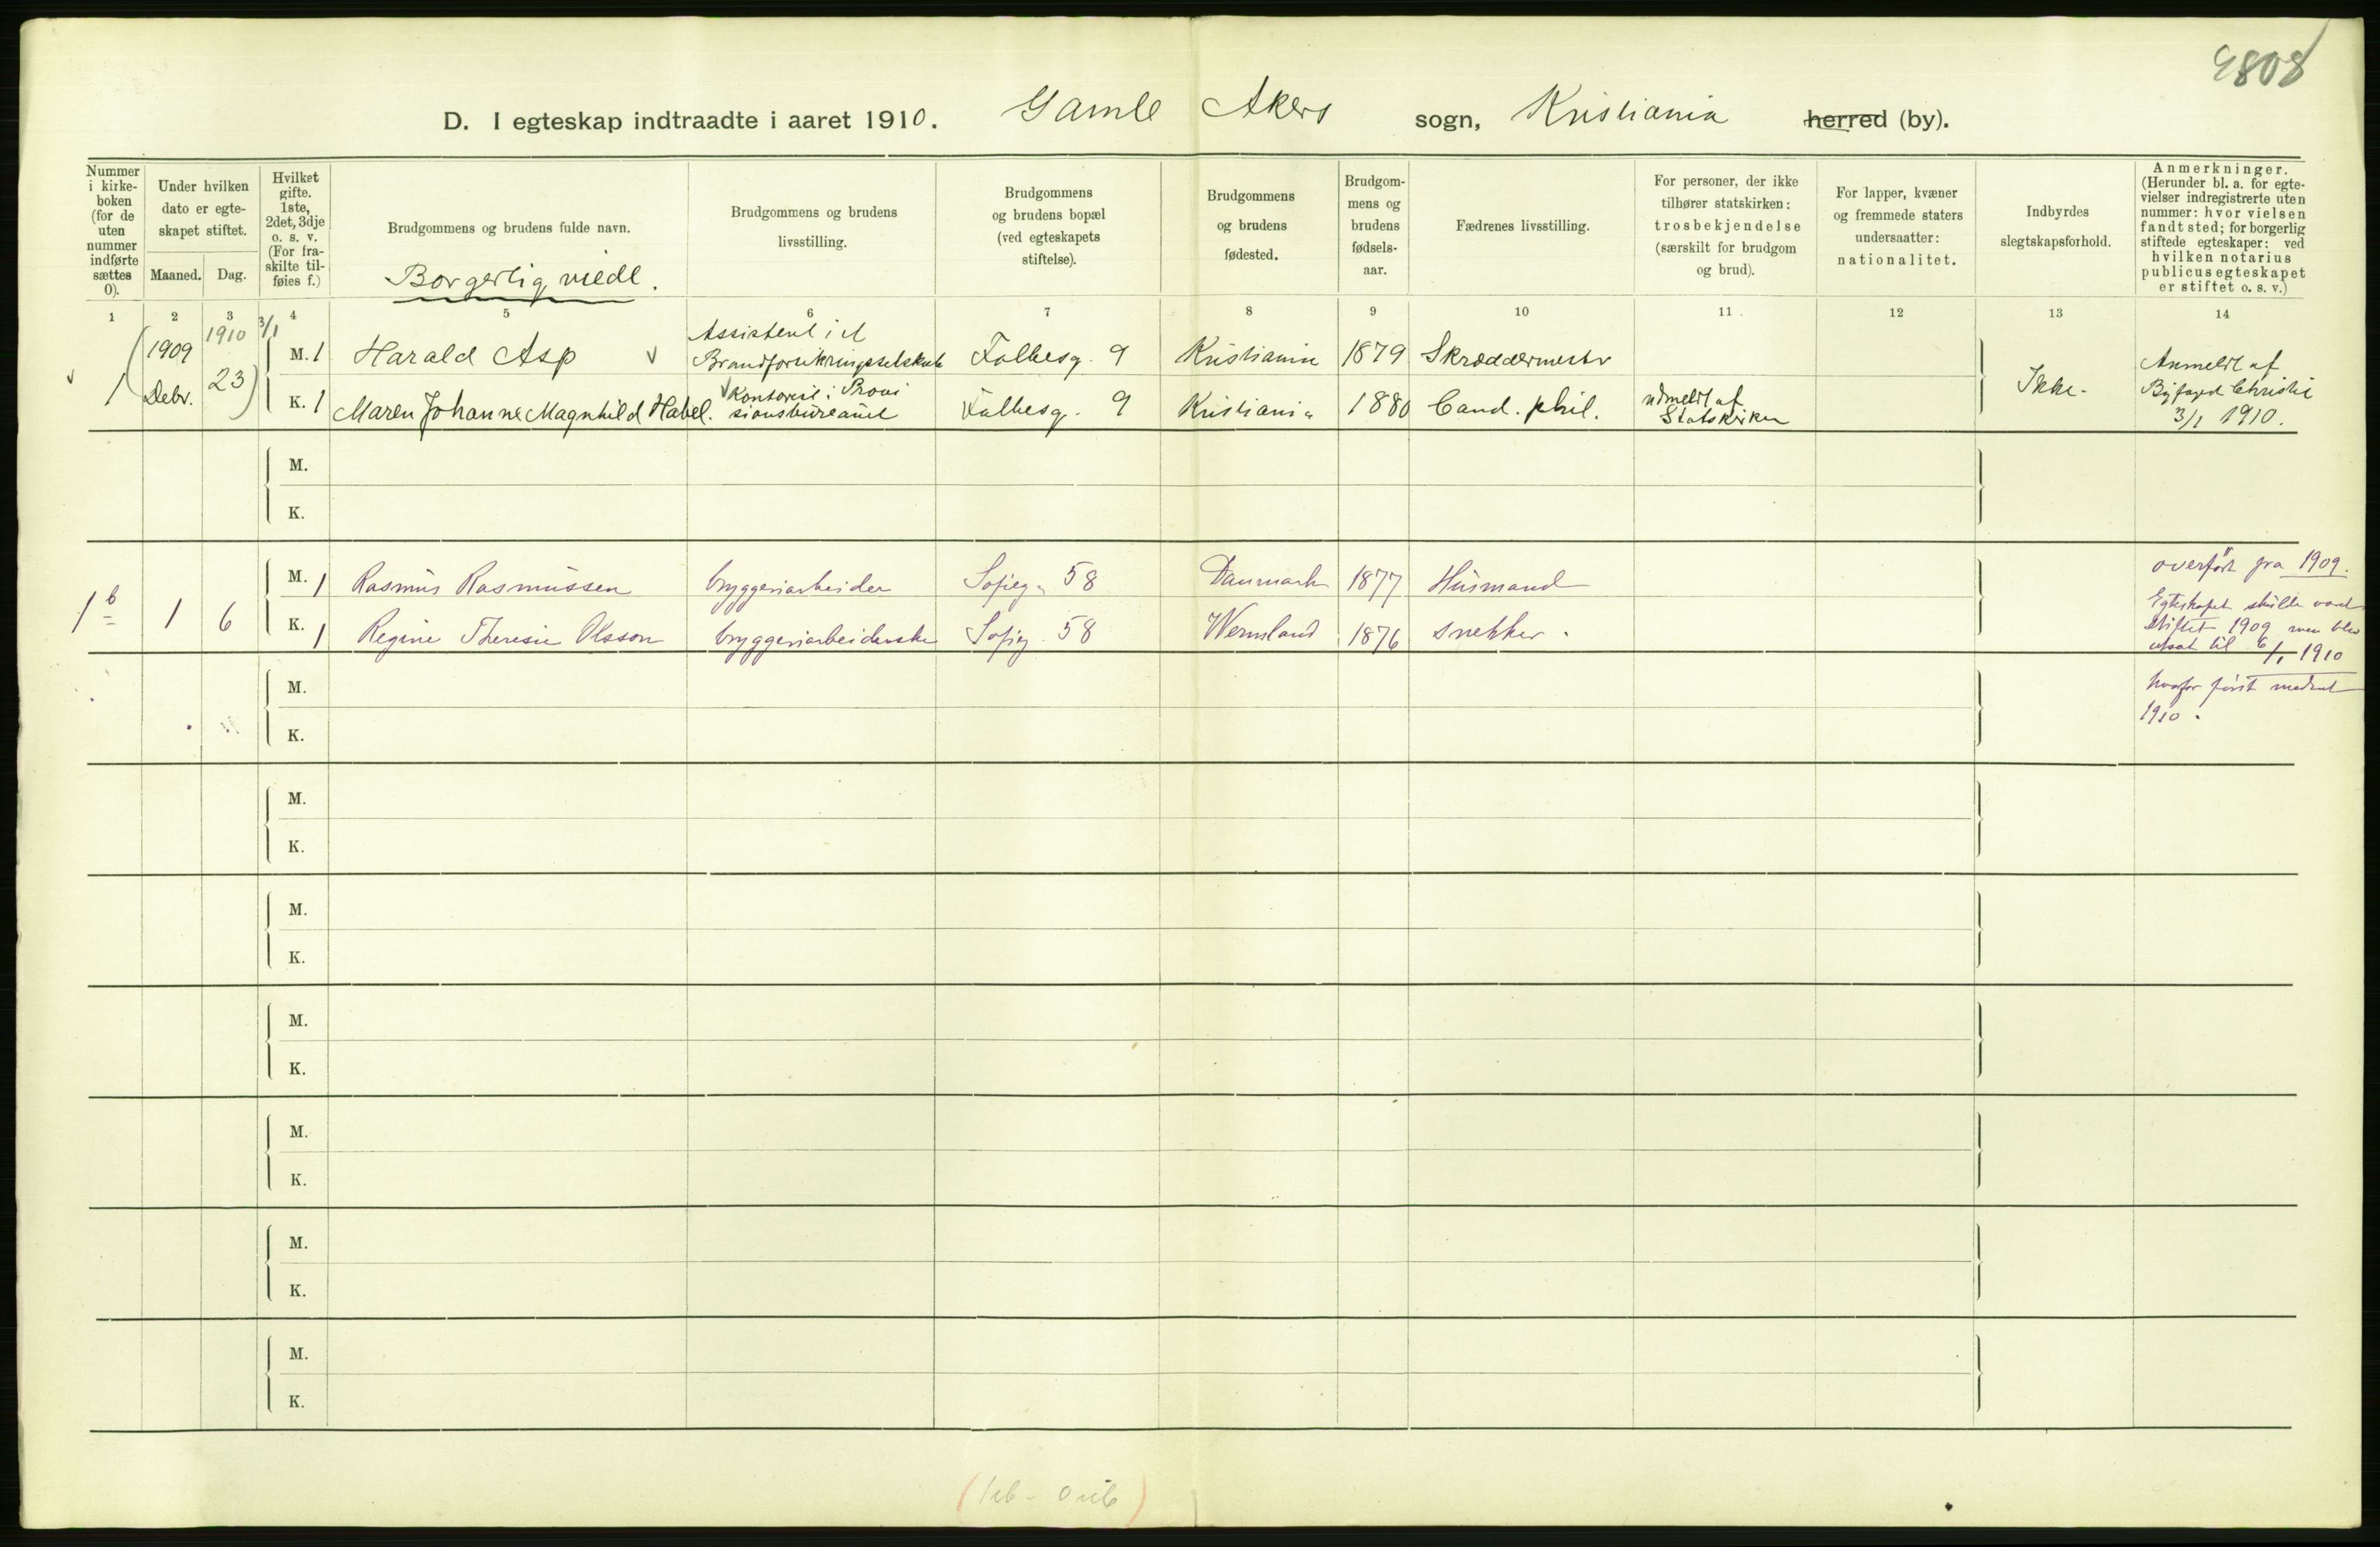 4808
D. I egteskap indtraadte i aaret 1910. Gamle Akers sogn, Kristiania herred (by).
Nummer i kirke-boken (for de uten nummer indførte sættes 0).
Under hvilken dato er egte-skapet stiftet.
Maaned. Dag.
Hvilket gifte. 1ste, 2det, 3dje o. s. v. (For fra-skilte til-føies f.)
Brudgommens og brudens fulde navn.
Borgerlig viede.
Brudgommens og brudens livsstilling.
Brudgommens og brudens bopæl (ved egteskapets stiftelse).
Brudgommens og brudens fødested.
Brudgom-mens og brudens fødsels-aar.
Fædrenes livsstilling.
For personer, der ikke tilhører statskirken: trosbekjendelse (særskilt for brudgom og brud).
For lapper, kvæner og fremmede staters undersaatter: nationalitet.
Indbyrdes slegtskapsforhold.
Anmerkninger. (Herunder bl. a. for egte-vielser indregistrerte uten nummer: hvor vielsen fandt sted; for borgerlig stiftede egteskaper: ved hvilken notarius publicus egteskapet er stiftet o. s. v.)
1 2 3 4 5 6 7 8 9 10 11 12 13 14
1 (1909 Debr. 23) 1910 3/1
M. 1 Harald Asp Assistent i et Brandforsikringsselskab Falbesg. 9 Kristiania 1879 Skræddermester
K. 1 Maren Johanne Magnhild Habel. Kontorist i Provisionsbureauet Falbesg. 9 Kristiania 1880 Cand. phil. udmeldt af Statskirken
Ikke.
Anmeldt af
Byfoged Christie
3/1 1910.
M.
K.
1b 1 6
M. 1 Rasmus Rasmussen bryggeriarbeider Sofieg. 58 Danmark 1877 Husmand
K. 1 Regine Theresie Olsson bryggeriarbeiderske Sofieg. 58 Wermland 1876 snekker.
overført fra 1909.
Egteskapet skulde vært
stiftet 1909 men blev
utsat til 6/1 1910
hvorfor først medtat
1910.
M.
K.
M.
K.
M.
K.
M.
K.
M.
K.
M.
K.
M.
K.